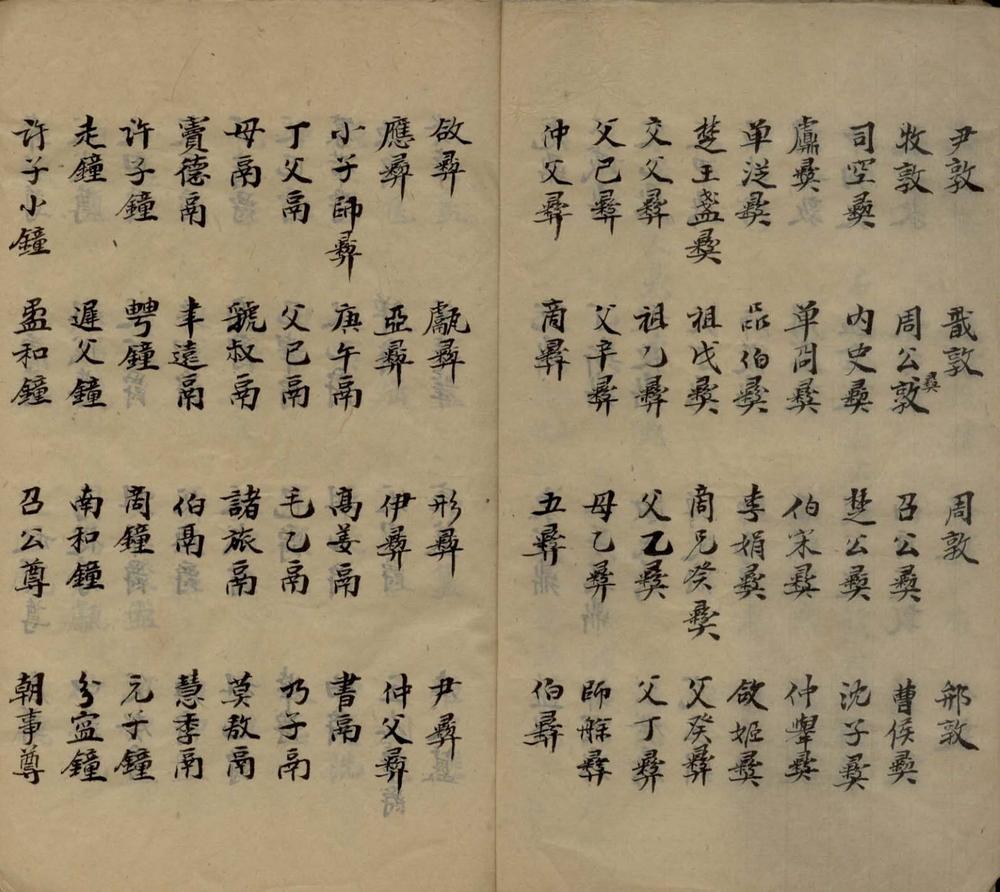 尹敦　戠敦　周敦　邢敦
牧敦　周公敦彝　召公彝　曹侯彝
司空彝　内史彝　楚公彝　沈子彝
彝　单冏彝　伯宋彝　仲彝
单从彝　品伯彝　季娟彝　敛姬彝
楚王盏彝　祖戊彝　商兄癸彝　父癸彝
交父彝　祖乙彝　父乙彝　父丁彝
父己彝　父辛彝　母乙彝　師艅彝
仲父彝　商彝　五彝　伯彝
敛彝　甗彝　形彝　尹彝
應彝　亞彝　伊彝　仲父彝
小子師彝　庚午鬲　高姜鬲　書鬲
丁父鬲　父己鬲　毛乙鬲　乃子鬲
母鬲　虢叔鬲　諸旅鬲　莫敖鬲
竇德鬲　聿遠鬲　伯鬲　慧季鬲
许子鐘　鐘　周鐘　元子鐘
走鐘　遲父鐘　南和鐘　分寍鐘
许子小鐘　盄和鐘　召公尊　朝事尊